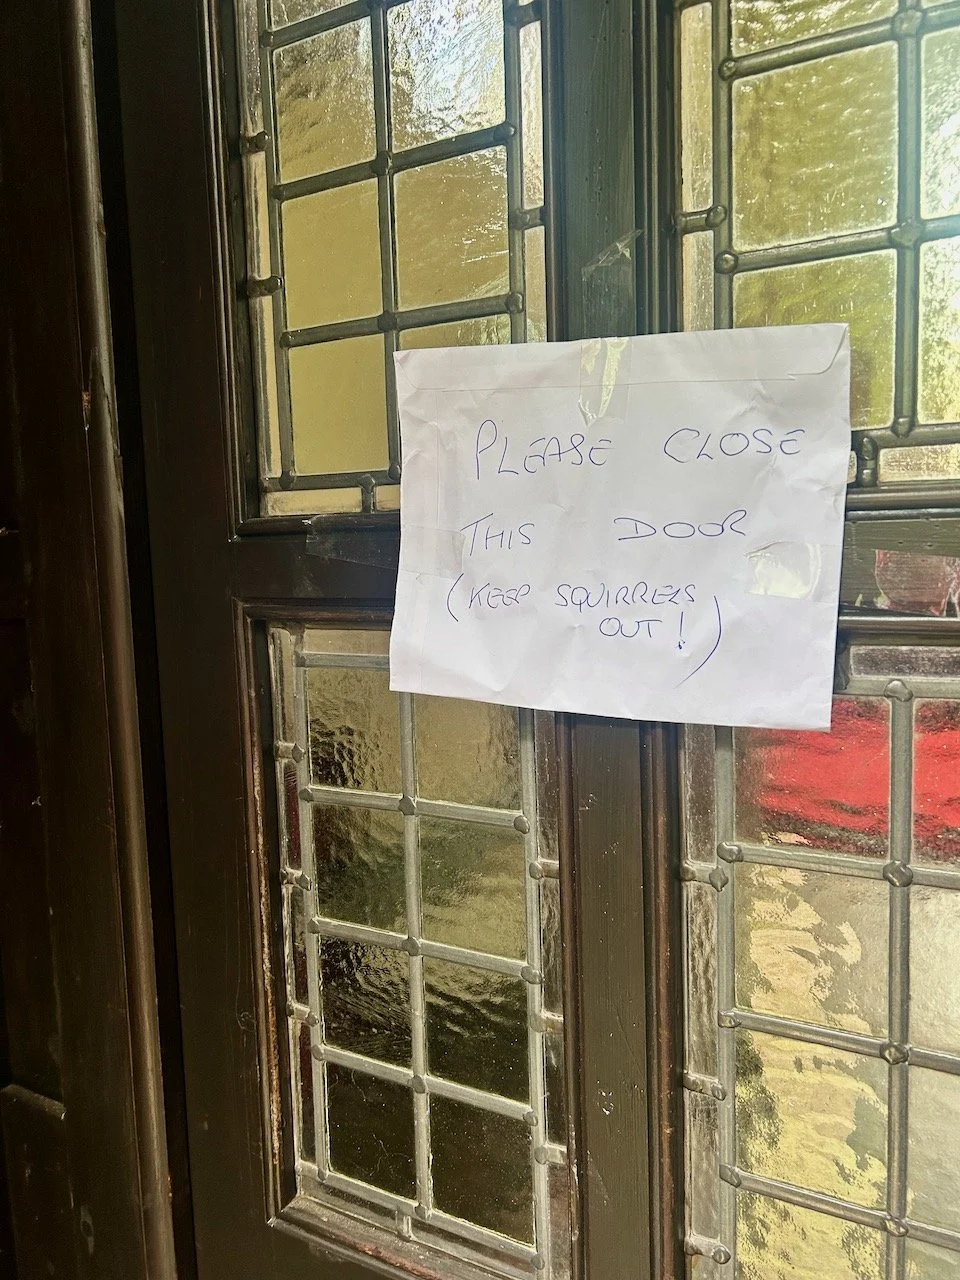 PLEASE CLOSE
THIS DOOR
(KEEP SQUIRRELS
OUT!)